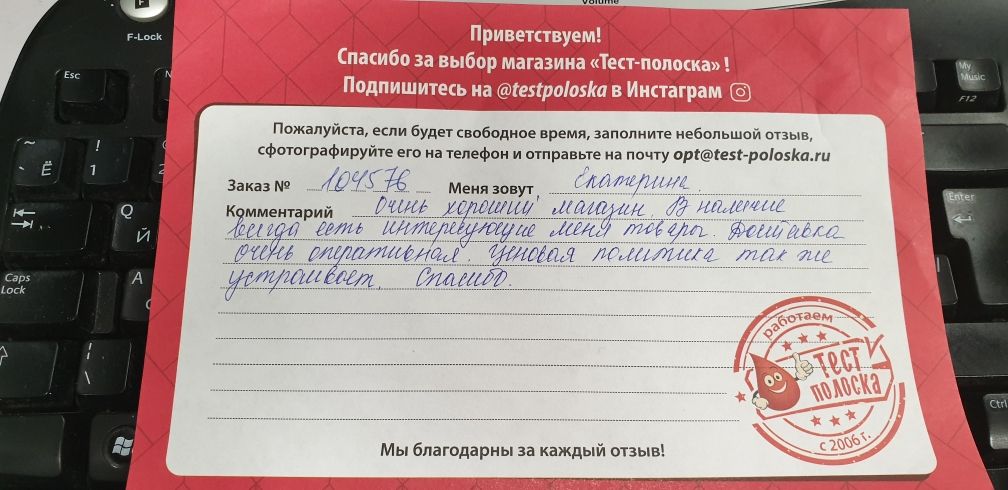 Volume
F-Lock
Esc
My
Music
F12
~
Ё
!
1
Q
Й
Caps
Lock
A
Enter
Ctrl
Приветствуем!
Спасибо за выбор магазина «Тест-полоска» !
Подпишитесь на @testpoloska в Инстаграм
Пожалуйста, если будет свободное время, заполните небольшой отзыв,
сфотографируйте его на телефон и отправьте на почту opt@test-poloska.ru
Заказ № 104576 Меня зовут Екатерина.
Комментарий Очень хороший магазин. В наличие
всегда есть интересующие меня товары. Доставка
очень оперативная. Ценовая политика так же
устраивает. Спасибо.
работаем
ТЕСТ
ПОЛОСКА
с 2006 г.
Мы благодарны за каждый отзыв!